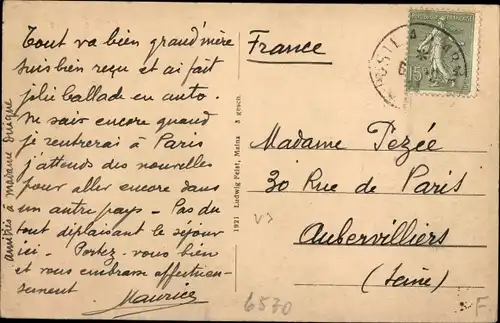 Tout va bien grand'mère
suis bien reçu et ai fait
jolie ballade en auto.
Ne sais encore quand
je rentrerai à Paris
j'attends des nouvelles
pour aller encore dans
un autre pays - Pas du
tout déplaisant le séjour
ici - Portez-vous bien
et vous embrasse affectueu-
sement
Maurice
amitiés à madame
1921 Ludwig Feist, Mainz 3 gesch.
France
REPUBLIQUE FRANÇAISE
15
Madame Pezée
30 Rue de Paris
Aubervilliers
(Seine)
6570
F